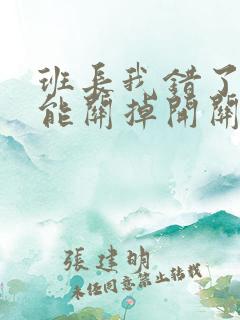 班長我錯了
能關掉開關
張建明
未經同意禁止轉載